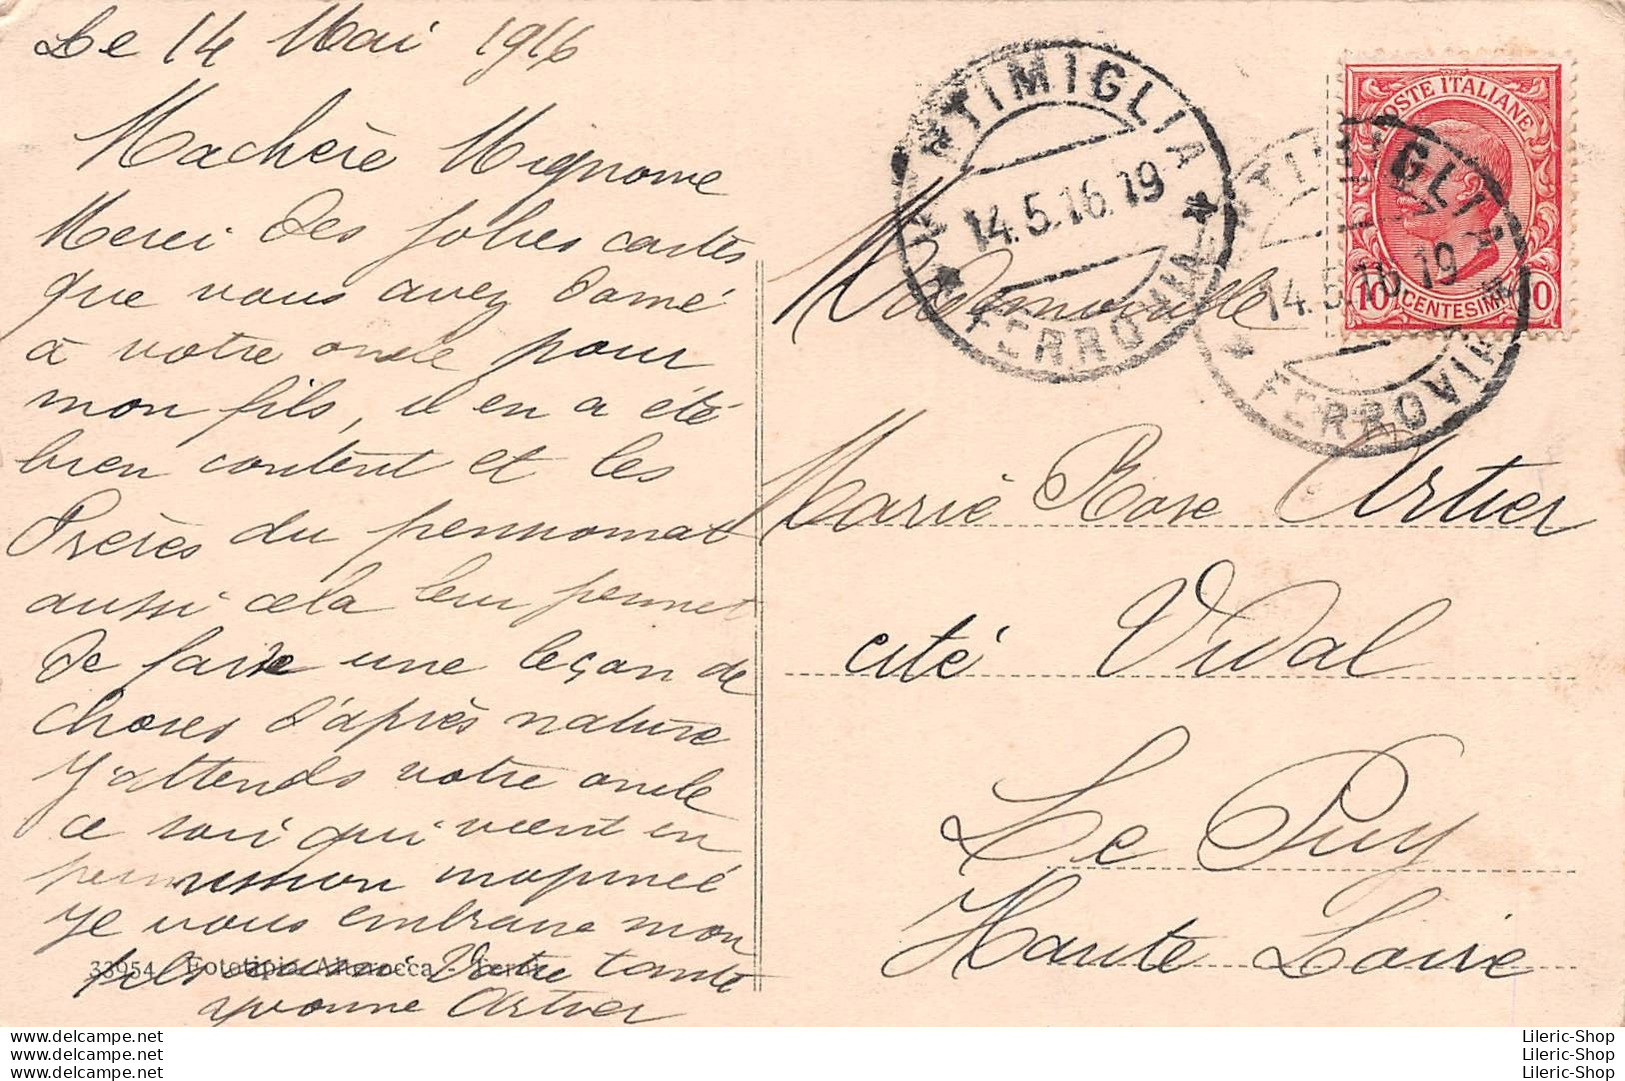 Le 14 Mai 1916
Machère Mignonne
Merci des jolies cartes
que vous avez donné
à votre oncle pour
mon fils, il en a été
bien content et les
Frères du pensionnat
aussi cela leur permet
de faire une leçon de
choses d'après nature
J'attends votre oncle
ce soir qui vient en
permission
Je vous embrasse mon
fils aussi Votre tante
Yvonne Artier
33954 Fototipia Alterocca - Terni
VENTIMIGLIA
14.5.16.19
FERROVIA
VENTIMIGLIA
14.5.16.19
FERROVIA
POSTE ITALIANE
10 CENTESIMI 10
Mademoiselle
Marie Rose Artier
cité Vidal
Le Puy
Haute Loire
Lileric-Shop
Lileric-Shop
Lileric-Shop